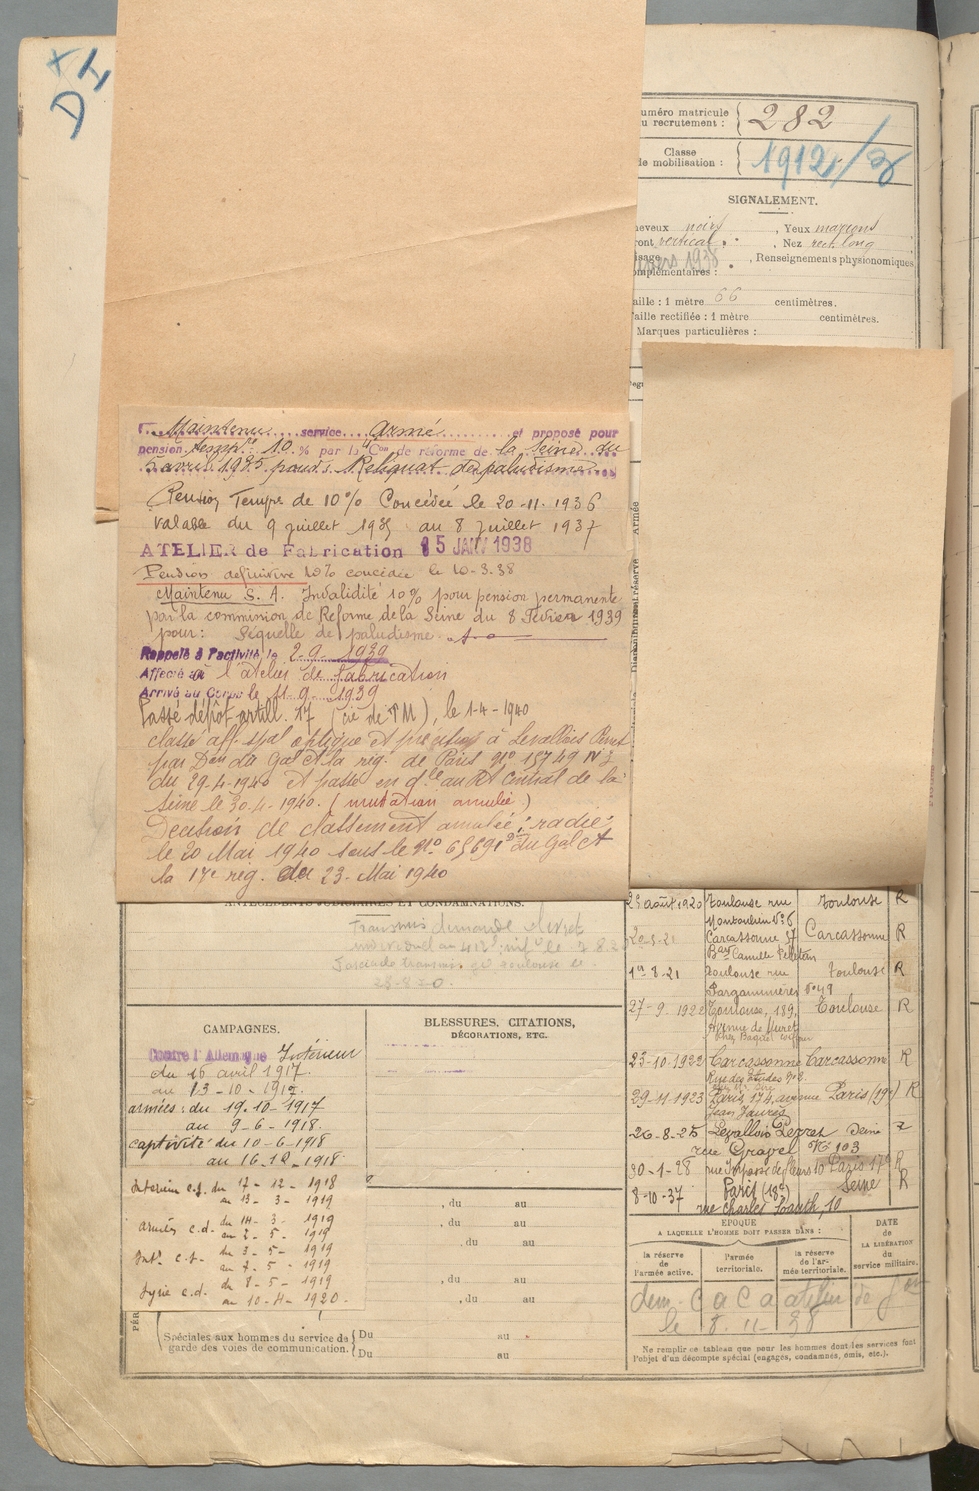 DI
uméro matricule
u recrutement :
282
Classe
de mobilisation :
1912/
SIGNALEMENT.
heveux noirs, Yeux marrons
ront vertical, Nez rect. long
isage, Renseignements physionomiques
omplémentaires :
mars 1938
aille : 1 mètre 66 centimètres.
aille rectifiée : 1 mètre centimètres.
Marques particulières :
Maintenu service Armé et proposé pour
pension temp.re 10 % par la Con de réforme de la Seine du
5 avril 1935 pour : Reliquat de paludisme
Pension Tempre de 10% Concédée le 20-11-1936
valable du 9 juillet 1935 au 8 juillet 1937
ATELIER de Fabrication 15 JANV 1938
Pension définitive 10% concédée le 10-3-38
Maintenu S. A. Invalidité 10% pour pension permanente
par la commission de Réforme de la Seine du 8 Février 1939
pour : Séquelle de paludisme
Rappelé à l'activité le 2-9-1939
Affecté à l'atelier de fabrication
Arrivé au Corps le 11-9-1939
Passé dépôt artill. 17 (cie de PM), le 1-4-1940
classé aff. spal optique et à Levallois Perret
par Don du Gal Ct la rég. de Paris No 15749
du 29-4-1940 et passé en au Rt Central de la
Seine le 30-4-1940. (mutation annulée)
Décision de classement annulée, radié
le 20 Mai 1940 sous le No du Gal Ct
la 17e rég. du 23 Mai 1940
Armée
ANTÉCÉDENTS JUDICIAIRES ET CONDAMNATIONS.
Transmis demande
individuel au le 7.8.2
Fascicule transmis Toulouse le
25-8-20.
CAMPAGNES.
Contre l'Allemagne Intérieur
du 16 avril 1917.
au 13-10-1917.
armées : du 19-10-1917
au 9-6-1918.
captivité du 10-6-1918
au 16-12-1918
Intérieur c.d. du 17-12-1918
au 13-3-1919
armées c.d. du 14-3-1919
au 2-5-1919
Intr c.d. du 3-5-1919
au 7-5-1919
Syrie c.d. du 8-5-1919
au 10-4-1920.
BLESSURES, CITATIONS,
DÉCORATIONS, ETC.
, du au
, du au
, du au
, du au
, du au
PÉR
Spéciales aux hommes du service de
garde des voies de communication.
Du au
Du au
août 1920 Toulouse rue Toulouse R
Montaulieu No 6
20-5-21 Carcassonne 57 Carcassonne R
Bard Camille Pelletan
1er 8-21 Toulouse rue Toulouse R
Pargaminières No 49
27-9-1922 Toulouse, 189, Toulouse R
Avenue de Muret
chez
23-10-1922 Carcassonne Carcassonne R
Rue des Etudes
29-11-1923 Paris 174, avenue Paris (19e) R
Jean Jaurès
26-8-25 Levallois Perret Seine
rue Gravel No 103
30-1-28 rue Impasse de fleurs 10 Paris 17e R
8-10-37 Paris (18e) Seine R
rue Charles 10
ÉPOQUE
A LAQUELLE L'HOMME DOIT PASSER DANS :
DATE
de
LA LIBÉRATION
du
service militaire.
la réserve
de
l'armée active.
l'armée
territoriale.
la réserve
de l'ar-
mée territoriale.
dem. atelier de
le 8-11-38
Ne remplir ce tableau que pour les hommes dont les services font
l'objet d'un décompte spécial (engagés, condamnés, omis, etc.).